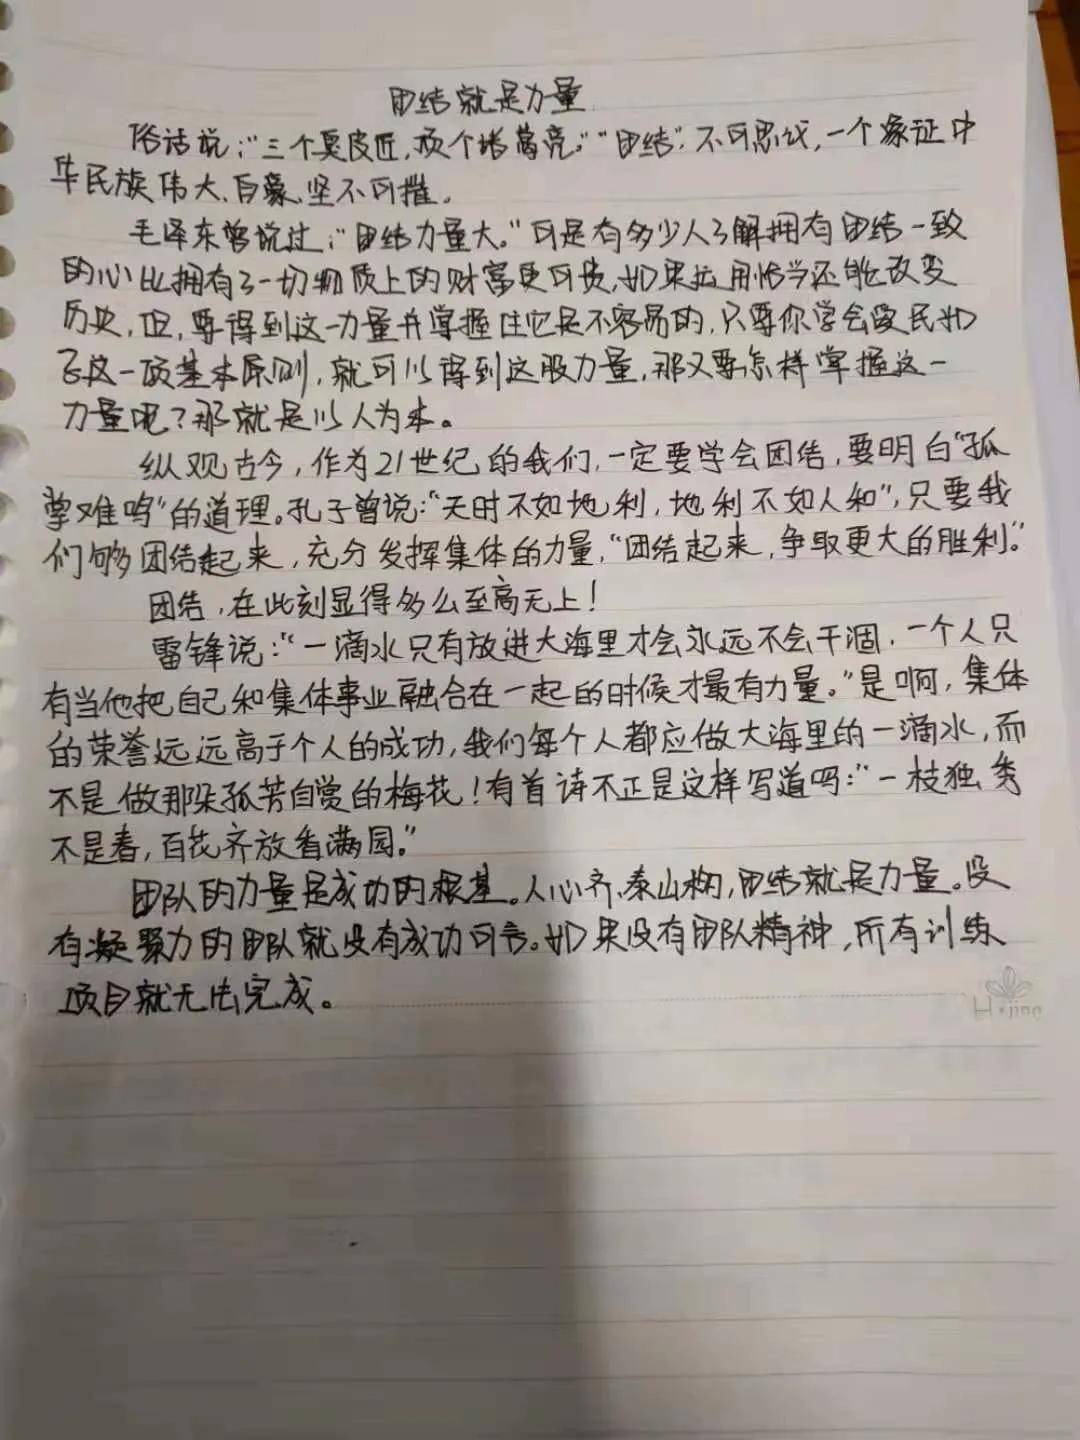 团结就是力量
俗话说:“三个臭皮匠,顶个诸葛亮。”“团结”,不可思议,一个象征中
华民族伟大、自豪、坚不可摧。
毛泽东曾说过:“团结力量大。”可是有多少人了解拥有团结一致
的心比拥有了一切物质上的财富更可贵,如果运用恰当还能改变
历史,但,要得到这一力量并掌握住它是不容易的,只要你学会爱民如
子这一项基本原则,就可以得到这股力量,那又要怎样掌握这一
力量呢?那就是以人为本。
纵观古今,作为21世纪的我们,一定要学会团结,要明白“孤
掌难鸣”的道理。孔子曾说:“天时不如地利,地利不如人和”,只要我
们够团结起来,充分发挥集体的力量,“团结起来,争取更大的胜利。”
团结,在此刻显得多么至高无上!
雷锋说:“一滴水只有放进大海里才会永远不会干涸,一个人只
有当他把自己和集体事业融合在一起的时候才最有力量。”是啊,集体
的荣誉远远高于个人的成功,我们每个人都应做大海里的一滴水,而
不是做那朵孤芳自赏的梅花!有首诗不正是这样写道吗:“一枝独秀
不是春,百花齐放香满园。”
团队的力量是成功的根基。人心齐,泰山移,团结就是力量。没
有凝聚力的团队就没有成功可言。如果没有团队精神,所有训练
项目就无法完成。
H·jing